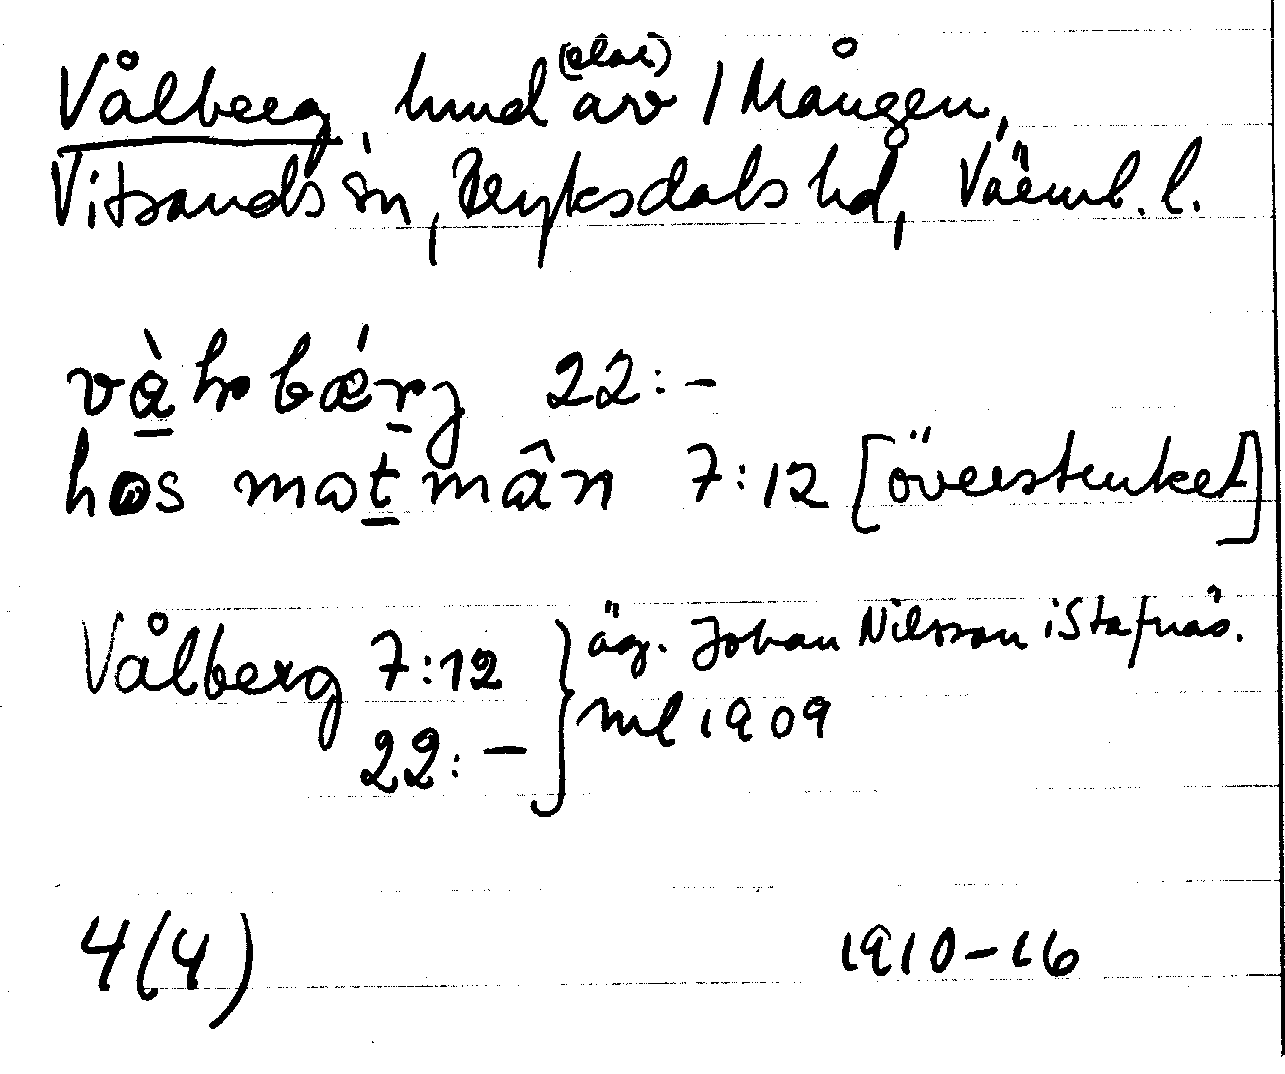 Vålberg, hmd (elar) av 1 Mången,
Vitsands sn, Fryksdals hd, Värml. l.
22:-
hos matmân 7:12 [överstruket]
Vålberg 7:12 } äg. Johan Nilsson i Stafnäs.
22:- ml 1909
4(4) 1910-16